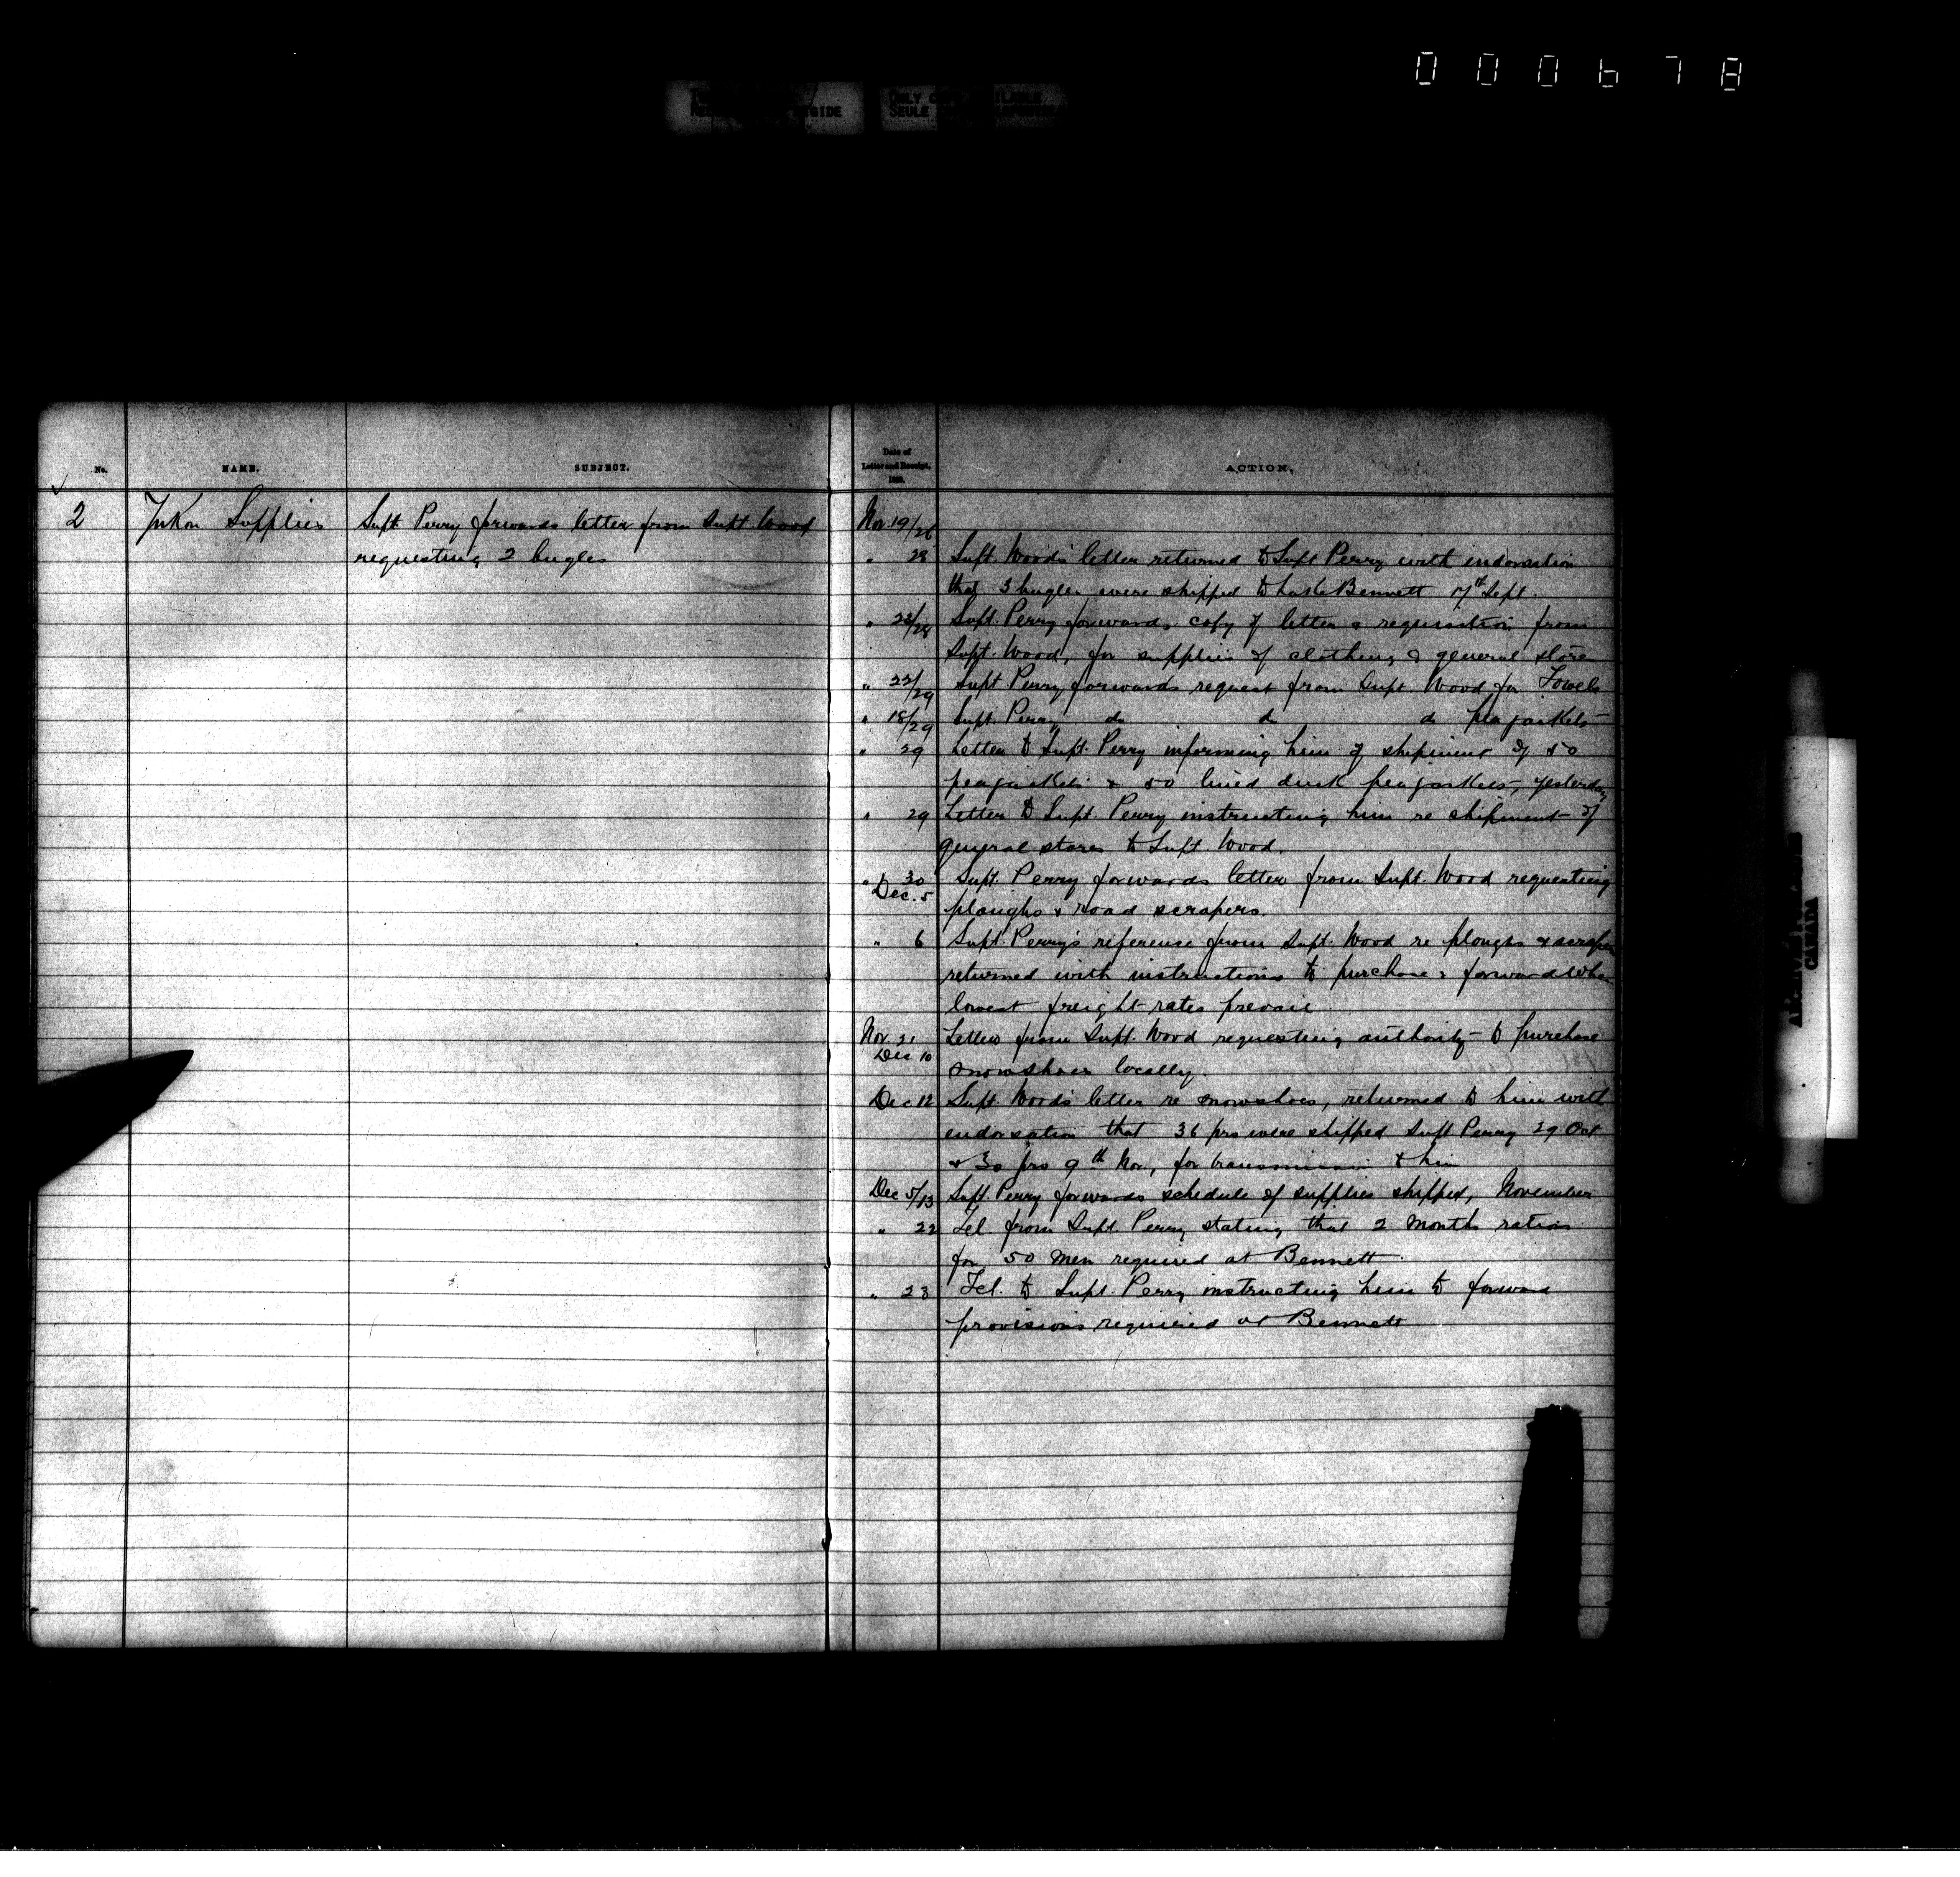 000678
ONLY
SEULE
No.
NAME.
SUBJECT.
Date of
Letter and Receipt.
189 .
ACTION.
2
Yukon Supplies
Supt. Perry forwards letter from Supt Wood
requesting 2 bugles
Nov. 19/26
" 28 Supt. Wood's letter returned to Supt Perry with endorsation
that 3 bugles were shipped to Bennett 17th Sept.
" 22/28 Supt. Perry forwards copy of letter & requisition from
Supt. Wood, for supplies of clothing & general stores
" 22/29 Supt Perry forwards request from Supt Wood for Towels
" 18/29 Supt. Perry do do do peajackets
" 29 Letter to Supt. Perry informing him of shipment of 50
peajackets & 50 lined duck peajackets, yesterday
" 29 Letter to Supt. Perry instructing him re shipment of
general stores to Supt. Wood.
" 30
Dec. 5 Supt. Perry forwards letter from Supt. Wood requesting
ploughs & road scrapers.
" 6 Supt. Perry's reference from Supt. Wood re ploughs & scrapers
returned with instructions to purchase & forward when
lowest freight rates prevail
Nov. 21
Dec 10 Letter from Supt. Wood requesting authority to purchase
snowshoes locally.
Dec 12 Supt. Wood's letter re snowshoes, returned to him with
endorsation that 36 prs were shipped Supt Perry 29 Oct
& 30 prs 9th Nov, for transmission to him
Dec 5/13 Supt. Perry forwards schedule of supplies shipped, November
" 22 Tel. from Supt. Perry stating that 2 months rations
for 50 men required at Bennett
" 23 Tel. to Supt. Perry instructing him to forward
provisions required at Bennett
CANADA